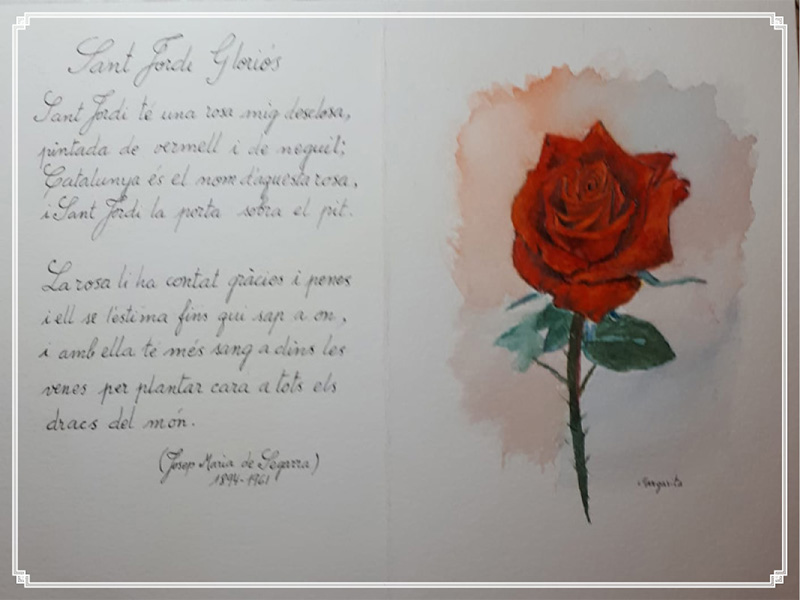 Sant Jordi Gloriós
Sant Jordi té una rosa mig desclosa,
pintada de vermell i de neguit;
Catalunya és el nom d'aquesta rosa,
i Sant Jordi la porta sobra el pit.
La rosa li ha contat gràcies i penes
i ell se l'estima fins qui sap a on,
i amb ella té més sang a dins les
venes per plantar cara a tots els
dracs del món.
(Josep Maria de Segarra)
1894-1961
Margarita